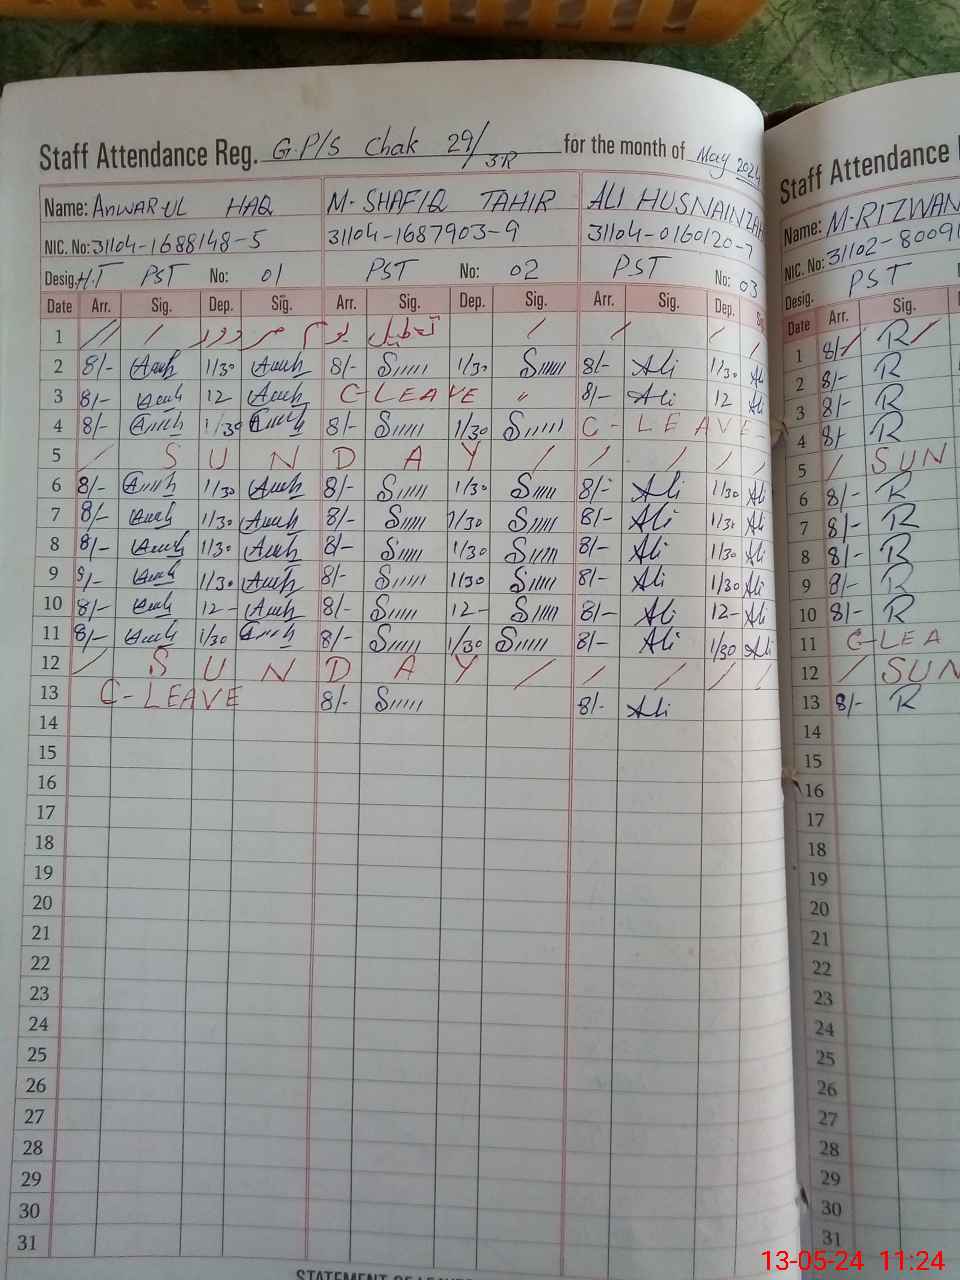 Staff Attendance Reg. G.P/S Chak 29/3R for the month of May 2024
Name: ANWAR-UL HAQ M. SHAFIQ TAHIR ALI HUSNAIN
NIC. No: 31104-1688148-5 31104-1687903-9 31104-0160120-7
Desig. H.T PST No: 01 PST No: 02 PST No: 03
Date Arr. Sig. Dep. Sig. Arr. Sig. Dep. Sig. Arr. Sig. Dep.
1 / / / تعطیل یوم مزدور / / / /
2 8/- 1/30 8/- 1/30 8/- Ali 1/30 Ali
3 8/- 12 C-LEAVE " 8/- Ali 12 Ali
4 8/- 1/30 8/- 1/30 C-LEAVE-
5 / SUNDAY / / / / /
6 8/- 1/30 8/- 1/30 8/- Ali 1/30 Ali
7 8/- 1/30 8/- 1/30 8/- Ali 1/30 Ali
8 8/- 1/30 8/- 1/30 8/- Ali 1/30 Ali
9 8/- 1/30 8/- 1/30 8/- Ali 1/30 Ali
10 8/- 12- 8/- 12- 8/- Ali 12- Ali
11 8/- 1/30 8/- 1/30 8/- Ali 1/30 Ali
12 / SUNDAY / / / / /
13 C-LEAVE 8/- 8/- Ali
14
15
16
17
18
19
20
21
22
23
24
25
26
27
28
29
30
31
Staff Attendance
Name: M. RIZWAN
NIC. No: 31102-8009
Desig. PST
Date Arr. Sig.
1 8/ R /
2 8/- R
3 8/- R
4 8/- R
5 / SUN
6 8/- R
7 8/- R
8 8/- R
9 8/- R
10 8/- R
11 C-LEA
12 / SUN
13 8/- R
14
15
16
17
18
19
20
21
22
23
24
25
26
27
28
29
30
31
13-05-24 11:24